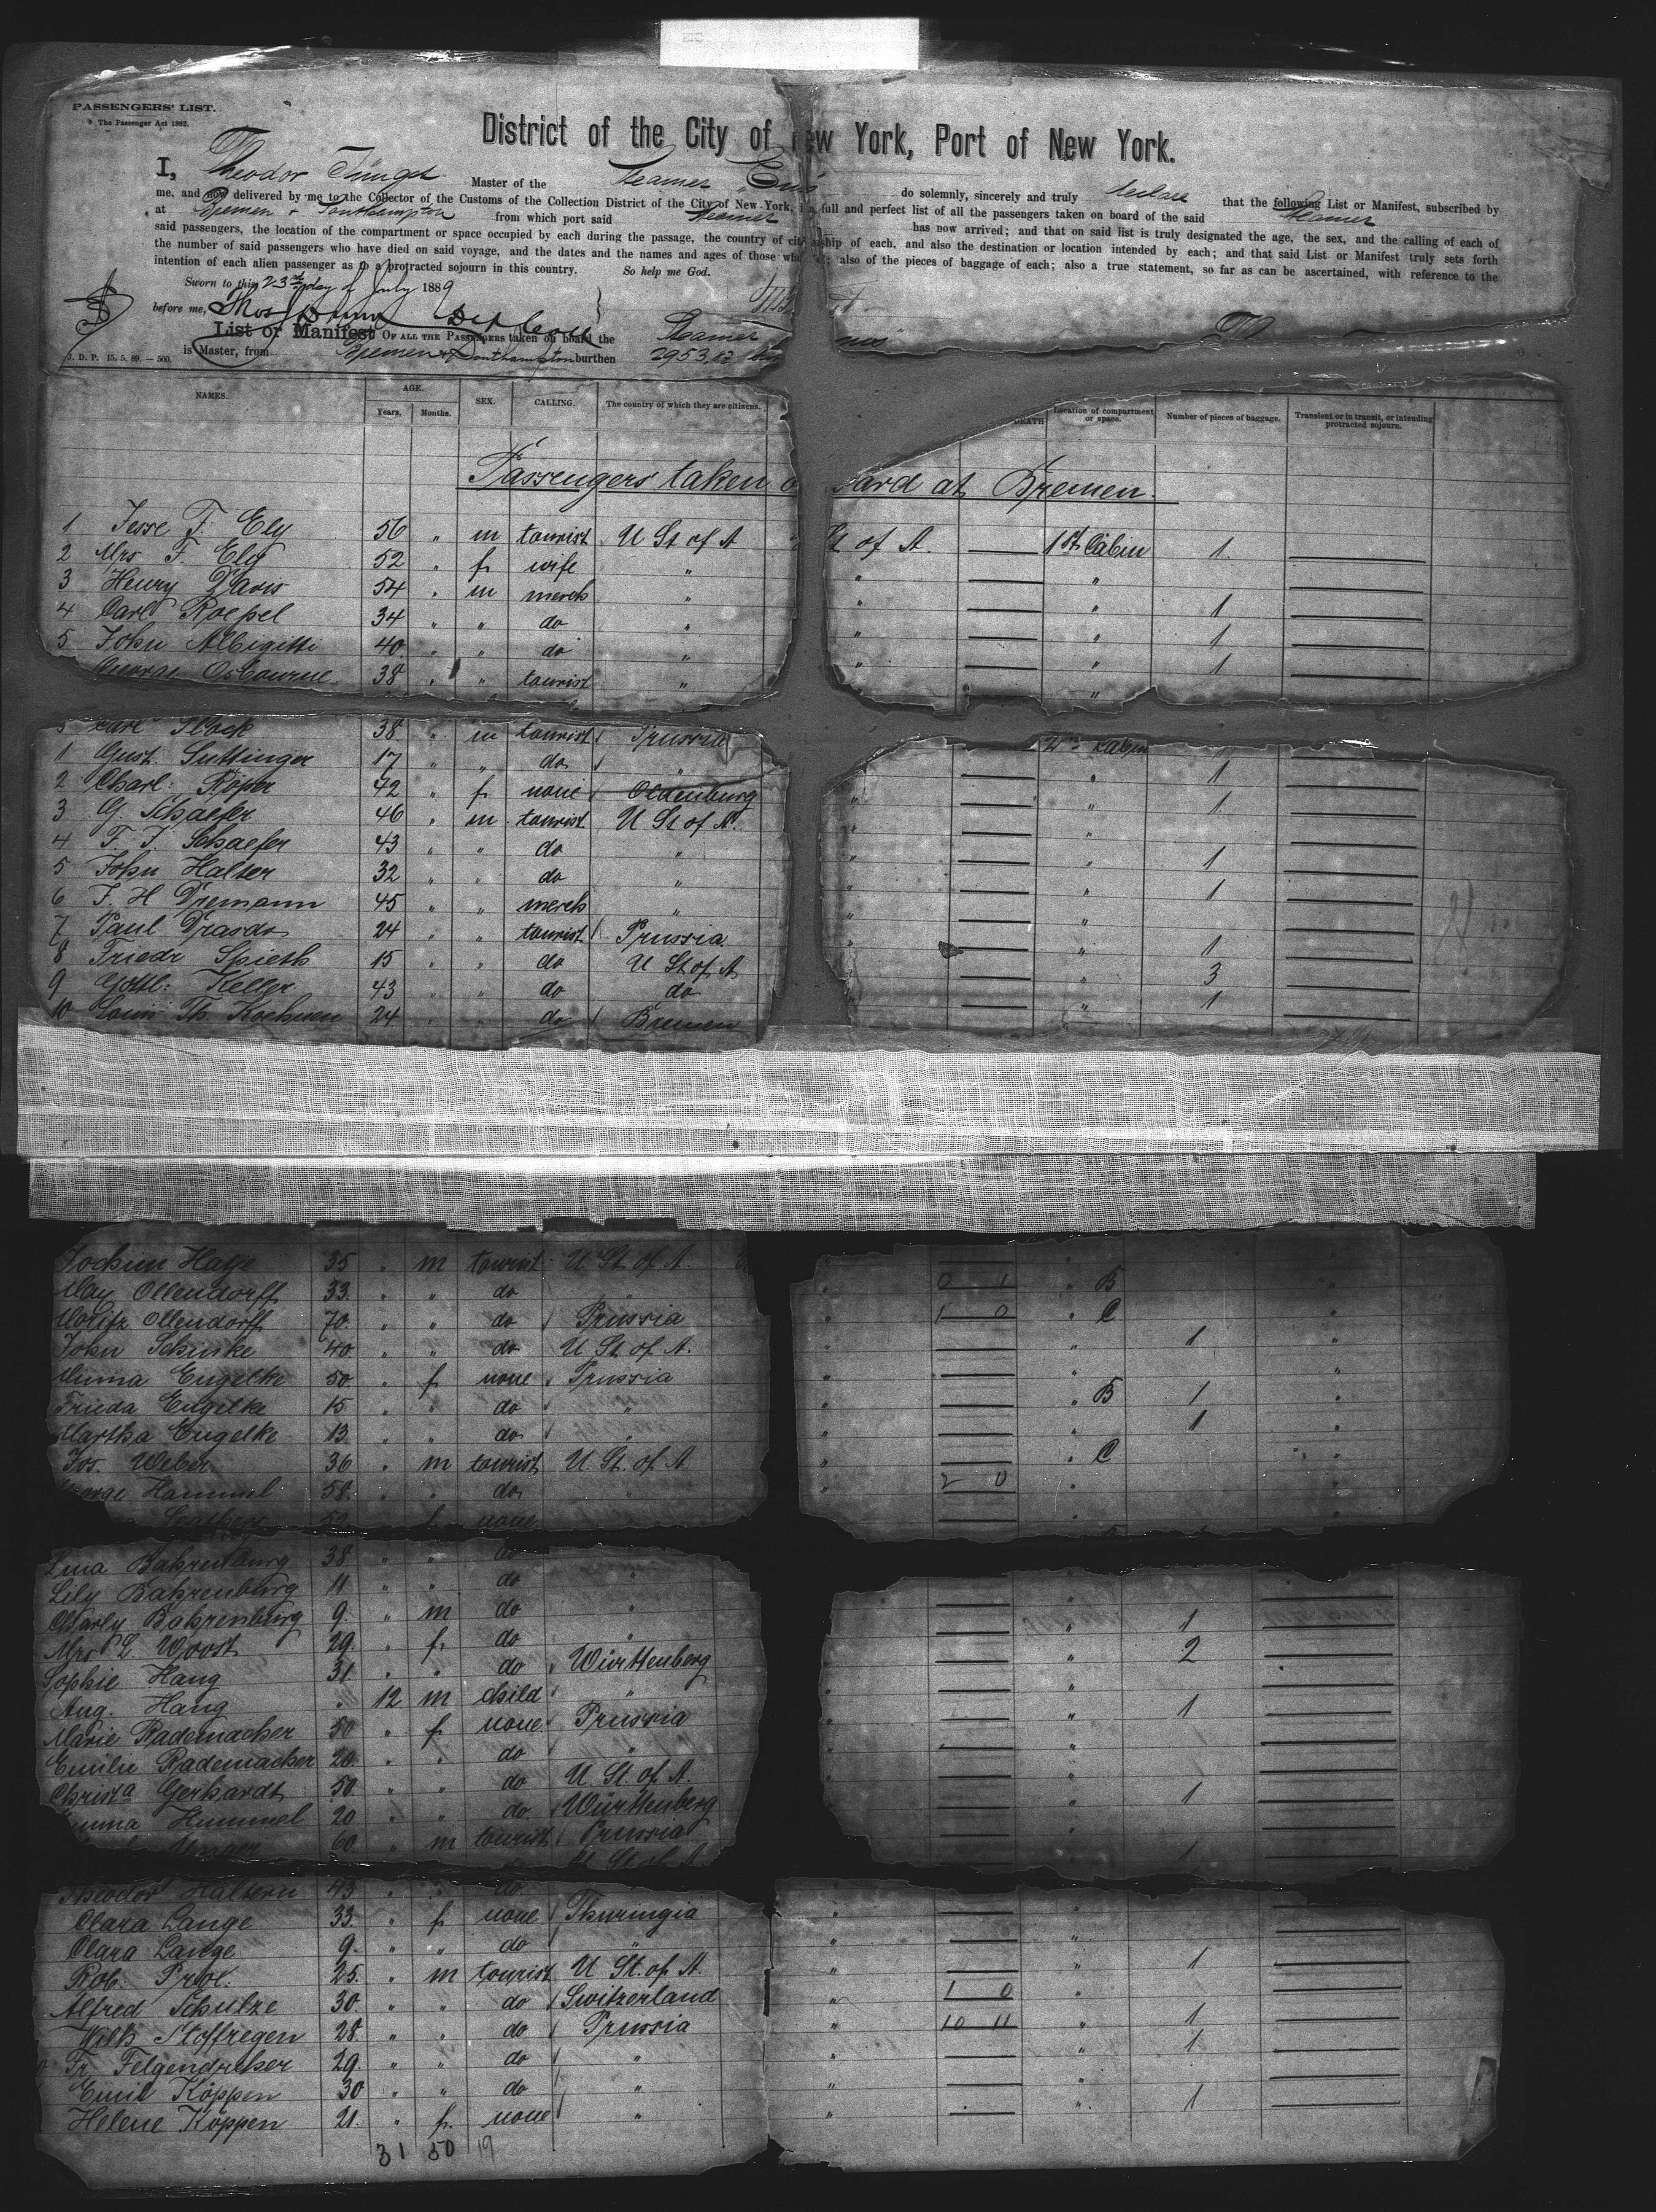 PASSENGERS' LIST.
The Passenger Act 1882.
District of the City of New York, Port of New York.
I, Theodor Jüngst Master of the Steamer "Ems" do solemnly, sincerely and truly declare that the following List or Manifest, subscribed by
me, and now delivered by me to the Collector of the Customs of the Collection District of the City of New York, is a full and perfect list of all the passengers taken on board of the said Steamer
at Bremen + Southampton from which port said Steamer has now arrived; and that on said list is truly designated the age, the sex, and the calling of each of
said passengers, the location of the compartment or space occupied by each during the passage, the country of citizenship of each, and also the destination or location intended by each; and that said List or Manifest truly sets forth
the number of said passengers who have died on said voyage, and the dates and the names and ages of those who died; also of the pieces of baggage of each; also a true statement, so far as can be ascertained, with reference to the
intention of each alien passenger as to a protracted sojourn in this country. So help me God.
Sworn to this 23rd day of July 1889
before me, Thos Dunn Dep Coll
List or Manifest OF ALL THE PASSENGERS taken on board the Steamer
J. D. P. 15. 5. 89. — 500. is Master, from Bremen & Southampton burthen 2953,82
NAMES. AGE. Years. Months. SEX. CALLING. The country of which they are citizens. DEATH Location of compartment or space. Number of pieces of baggage. Transient or in transit, or intending protracted sojourn.
Passengers taken o oard at Bremen.
1 Jesse F. Ely 56 " m tourist U St of A St of A. 1st Cabin 1
2 Mrs F. Ely 52 " f wife " " "
3 Henry Davis 54 " m merch " " " 1
4 Carl Roepel 34 " " do " " " 1
5 John Albigitti 40 " " do " " " 1
George Osbourne 38 " " tourist " "
Carl Stock 38 " m tourist Prussia 2nd Cabin
1 Gust. Suttinger 17 " " do " " 1
2 Charl: Röper 42 " f none Oldenburg " " 1
3 G. Schaefer 46 " m tourist U St of A. "
4 F. J. Schaefer 43 " " do " " " 1
5 John Halter 32 " " do " " " 1
6 J. H Diemann 45 " " merch " " "
7 Paul Drasdo 24 " " tourist Prussia " " 1
8 Friedr Spieth 15 " " do U St of A " " 3
9 Gottl: Keller 43 " " do do " " 1
10 Louis Th. Kochnen 24 " " do Bremen
Jochim Hatje 35 " m tourist U St. of A.
May Ollendorff 33. " " do " " 0 1 " B "
Moritz Ollendorff 70. " " do Prussia " 1 0 " C "
John Schinke 40 " " do U St. of A. " " 1 "
Minna Engelke 50 " f none Prussia " "
Frieda Engelke 15 " " do " " " B 1 "
Martha Engelke 13. " " do " " " 1 "
Jos. Weber 36 " m tourist U. St. of A. " " C "
George Hammel 58. " " do " " 2 0 " "
52 f none
Lina Bahrenburg 38. " " do "
Lily Bahrenburg 11 " " do " "
Charly Bahrenburg 9. " m do " " 1
Mrs L. Woost 29. " f. do " " 2
Sophie Haug 31. " " do Württenberg " "
Aug. Haug " 12 m child " " " 1
Marie Rademacher 50 " f none Prussia " "
Emilie Rademacher 20. " " do " " "
Christa Gerhardt 50. " " do U. St. of A. " " 1
Emma Hummel 20 " " do. Württenberg "
60 " m tourist Prussia 1
U St. of A
Theodor Haltern 43 " " do
Clara Lange 33. " f none Thuringia "
Clara Lange 9. " " do " " "
Rob. 25. " m tourist U St. of A. " " 1
Alfred Schulze 30. " " do Switzerland " 1 0 "
Wilh Stoffregen 28. " " do Prussia " 10 11 " 1
Fr. Felgendreher 29. " " do " " " 1
Emil Köppen 30 " " do " " "
Helene Köppen 21. " f. none " " " 1
31 50 19